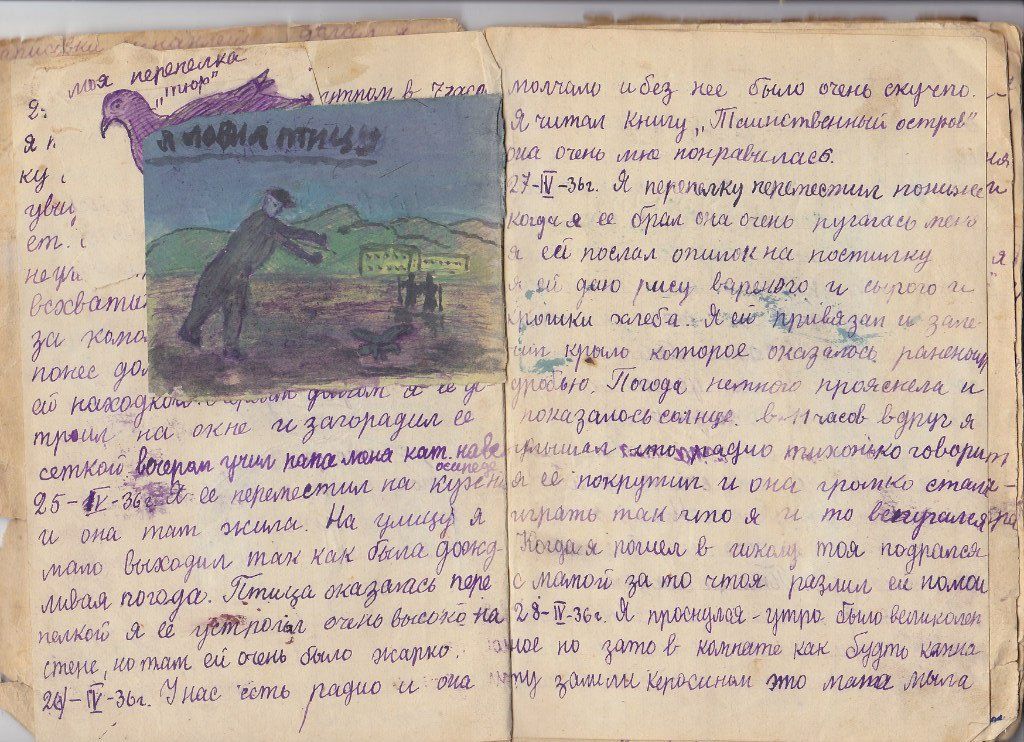 моя перепелка
"тюр"
я ловил птицу
2
утром в 7 часо
я
ку
увид
ет.
неуж
всхвати
за
понес до
ей находкой. я ее ус
троил на окне и загородил ее
сеткой вечером учил папа меня кат. на ве
осипеде
25-IV-36г. Я ее переместил на кухню
и она там жила. На улицу я
мало выходил так как была дожд
ливая погода. Птица оказалась пере
пелкой я ее устроил очень высоко на
стене, но там ей очень было жарко.
26-IV-36г. У нас есть радио и она
молчало и без нее было очень скучно.
Я читал книгу „Таинственный остров"
она очень мне понравилась.
27-IV-36г. Я перепелку переместил пониже и
когда я ее брал она очень пугалась меня
я ей послал опилок на постилку
я ей даю рису вареного и сырого и
крошки хлеба. Я ей привязал и зале
чил крыло которое оказалось раненым
дробью. Погода немного прояснела и
показалось солнце. в 11 часов вдруг я
услышал что радио тихонько говорит
я ее покрутил и она громко стала
играть так что я и то испугался
Когда я пошел в школу то я подрался
с мамой за то что я разлил ей помои
28-IV-36г. Я проснулся - утро было великолеп
ное но зато в комнате как будто
залили керосином это мама мыла